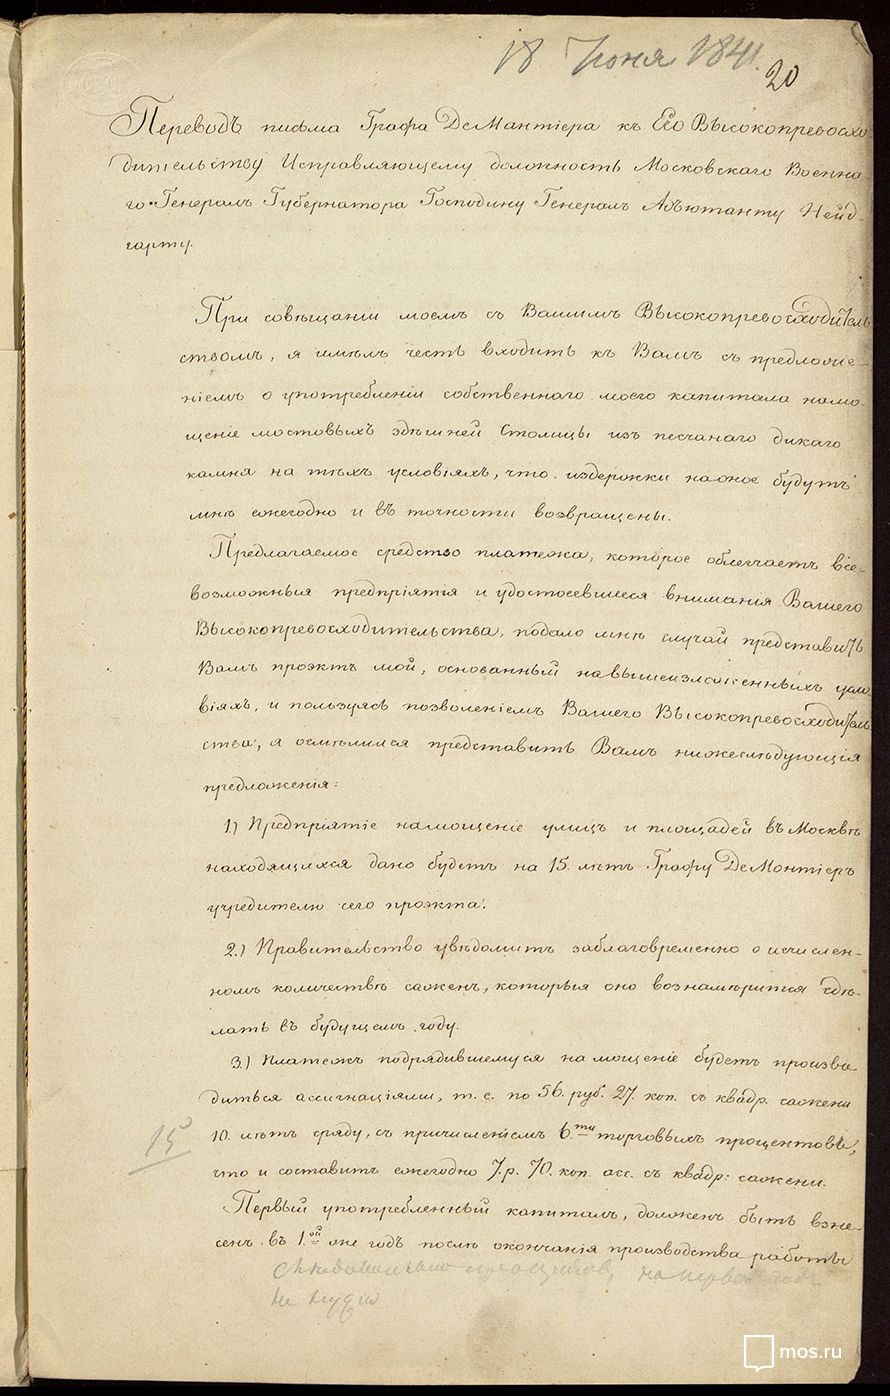 18 Іюня 1841.
20
Переводъ письма Графа ДеМантіера къ Его Высокопревосхо-
дительству Исправляющему должность Московскаго Военна-
го Генералъ Губернатора Господину Генералъ Адъютанту Нейд-
гарту.
При совѣщаніи моемъ съ Вашимъ Высокопревосходитель-
ствомъ, я имѣлъ честь входить къ Вамъ съ предложе-
ніемъ о употребленіи собственнаго моего капитала на мо-
щеніе мостовыхъ здѣшней Столицы изъ песчанаго дикаго
камня на тѣхъ условіяхъ, что издержки на оное будутъ
мнѣ ежегодно и въ точности возвращены.
Предлагаемое средство платежа, которое облегчаетъ все-
возможныя предпріятія и удостоевшееся вниманія Вашего
Высокопревосходительства, подало мнѣ случай представить
Вамъ проэктъ мой, основанный на вышеизложенныхъ усло-
віяхъ, и пользуясь позволеніемъ Вашего Высокопревосходитель-
ства, я осмѣлился представить Вамъ нижеслѣдующія
предложенія:
1.) Предпріятіе на мощеніе улицъ и площадей въ Москвѣ
находящихся дано будетъ на 15. лѣтъ Графу ДеМонтіеръ
учредителю сего проэкта.
2.) Правительство увѣдомитъ заблаговременно о исчислен-
номъ количествѣ саженъ, которыя оно вознамѣрится сдѣ-
лать въ будущемъ году.
3.) Платежъ подрядившемуся на мощеніе будетъ произво-
диться ассигнаціями, т. е. по 56. руб. 27. коп. съ квадр. сажени
15
10. лѣтъ сряду, съ причисленіемъ 6.ти торговыхъ процентовъ,
что и составитъ ежегодно 7. р. 70. коп. асс. съ квадр: сажени.
Первый употребленный капиталъ, долженъ быть взне-
сенъ въ 1.ой же годъ послѣ окончанія производства работы
на первой годъ
не
mos.ru